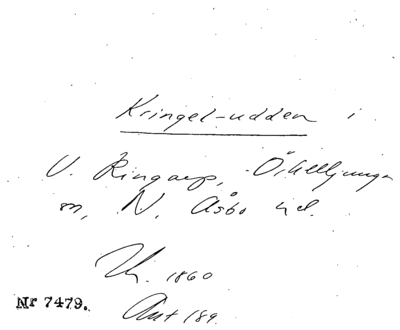 Kringel-udden i
V. Ringarp, Örkelljunga
sn, N. Åsbo hd.
Uk. 1860
Nr 7479.
Ant 189.